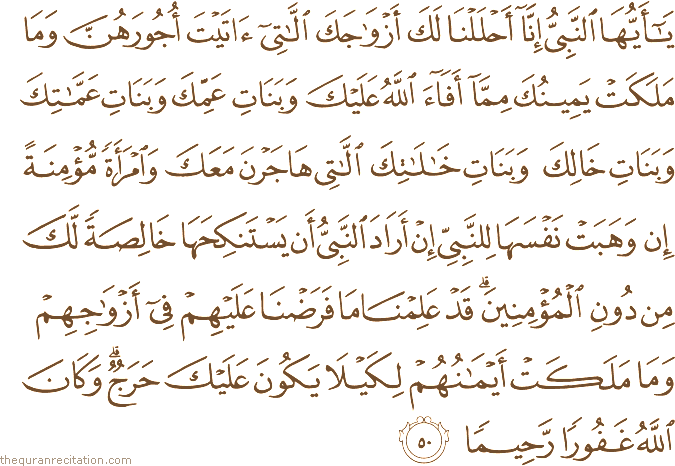 يَـٰٓأَيُّهَا ٱلنَّبِىُّ إِنَّآ أَحْلَلْنَا لَكَ أَزْوَٰجَكَ ٱلَّـٰتِىٓ ءَاتَيْتَ أُجُورَهُنَّ وَمَا
مَلَكَتْ يَمِينُكَ مِمَّآ أَفَآءَ ٱللَّهُ عَلَيْكَ وَبَنَاتِ عَمِّكَ وَبَنَاتِ عَمَّـٰتِكَ
وَبَنَاتِ خَالِكَ وَبَنَاتِ خَـٰلَـٰتِكَ ٱلَّـٰتِى هَاجَرْنَ مَعَكَ وَٱمْرَأَةً مُّؤْمِنَةً
إِن وَهَبَتْ نَفْسَهَا لِلنَّبِىِّ إِنْ أَرَادَ ٱلنَّبِىُّ أَن يَسْتَنكِحَهَا خَالِصَةً لَّكَ
مِن دُونِ ٱلْمُؤْمِنِينَ ۗ قَدْ عَلِمْنَا مَا فَرَضْنَا عَلَيْهِمْ فِىٓ أَزْوَٰجِهِمْ
وَمَا مَلَكَتْ أَيْمَـٰنُهُمْ لِكَيْلَا يَكُونَ عَلَيْكَ حَرَجٌ ۗ وَكَانَ
ٱللَّهُ غَفُورًا رَّحِيمًا ٥٠
thequranrecitation.com